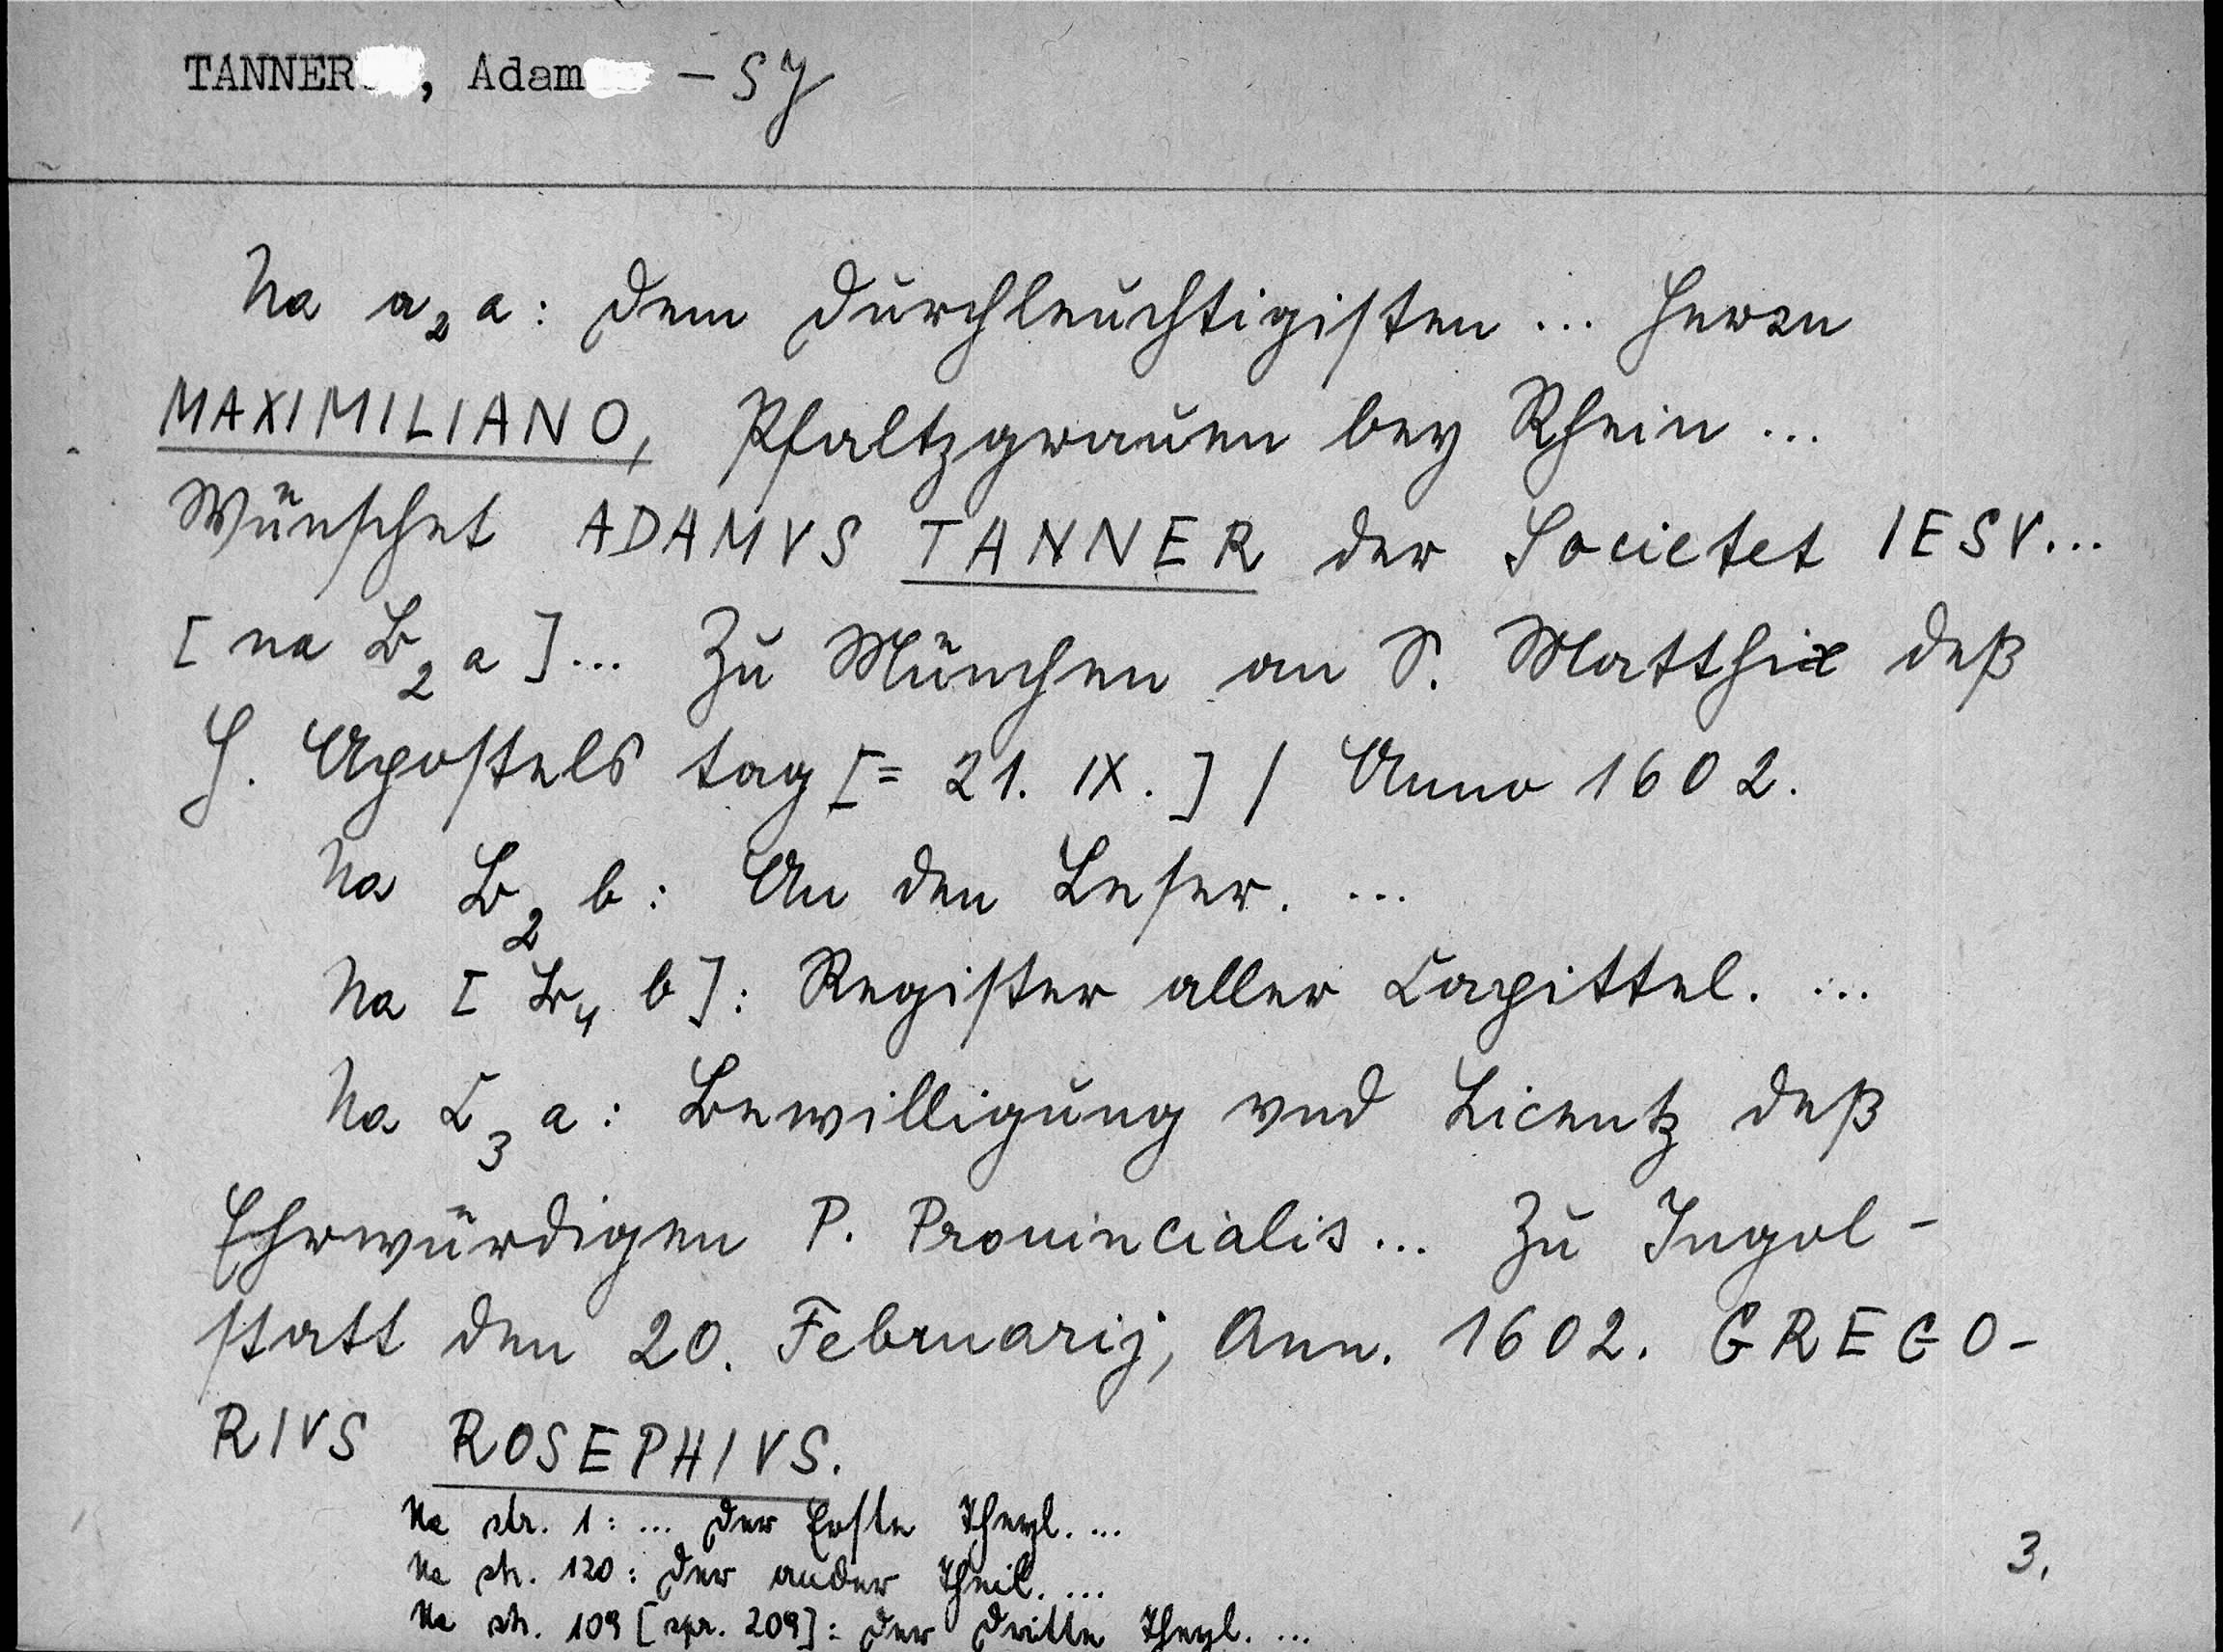 TANNER, Adam - SJ
Na a2 a: Dem Durchleuchtigisten ... Herrn
MAXIMILIANO, Pfaltzgrauen bey Rhein ...
Wünschet ADAMVS TANNER der Societet IESV...
[na B2 a]... Zu München an S. Matthiæ deß
H. Apostels tag [= 21. IX.] / Anno 1602.
Na B2 b: An den Leser. ...
Na [B4 b]: Register aller Capittel. ...
Na C3 a: Bewilligung vnd Licentz deß
Ehrwürdigen P. Prouincialis... Zu Ingol-
statt den 20. Februarij, Ann. 1602. GREGO-
RIVS ROSEPHIVS.
Na str. 1: ... Der Erste Theyl. ...
Na str. 120: Der ander Theil. ...
3.
Na str. 109 [spr. 209]: Der Dritte Theyl. ...